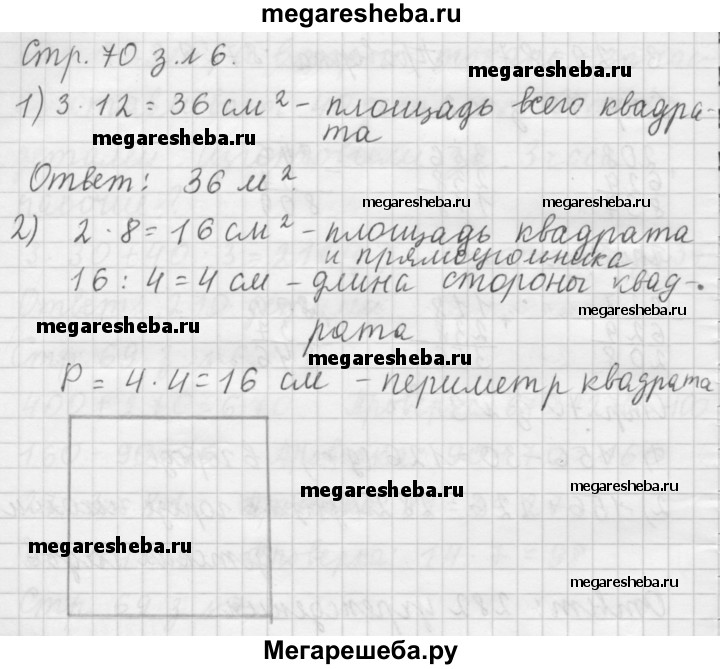 megaresheba.ru
Стр. 70 з. № 6.
megaresheba.ru
1) 3 · 12 = 36 см² - площадь всего квадра-
та
megaresheba.ru
Ответ: 36 м².
megaresheba.ru megaresheba.ru
2) 2 · 8 = 16 см² - площадь квадрата
и прямоугольника
16 : 4 = 4 см - длина стороны квад-
megaresheba.ru
рата
megaresheba.ru
megaresheba.ru
P = 4 · 4 = 16 см - периметр квадрата
megaresheba.ru
megaresheba.ru
megaresheba.ru
megaresheba.ru
Мегарешеба.ру